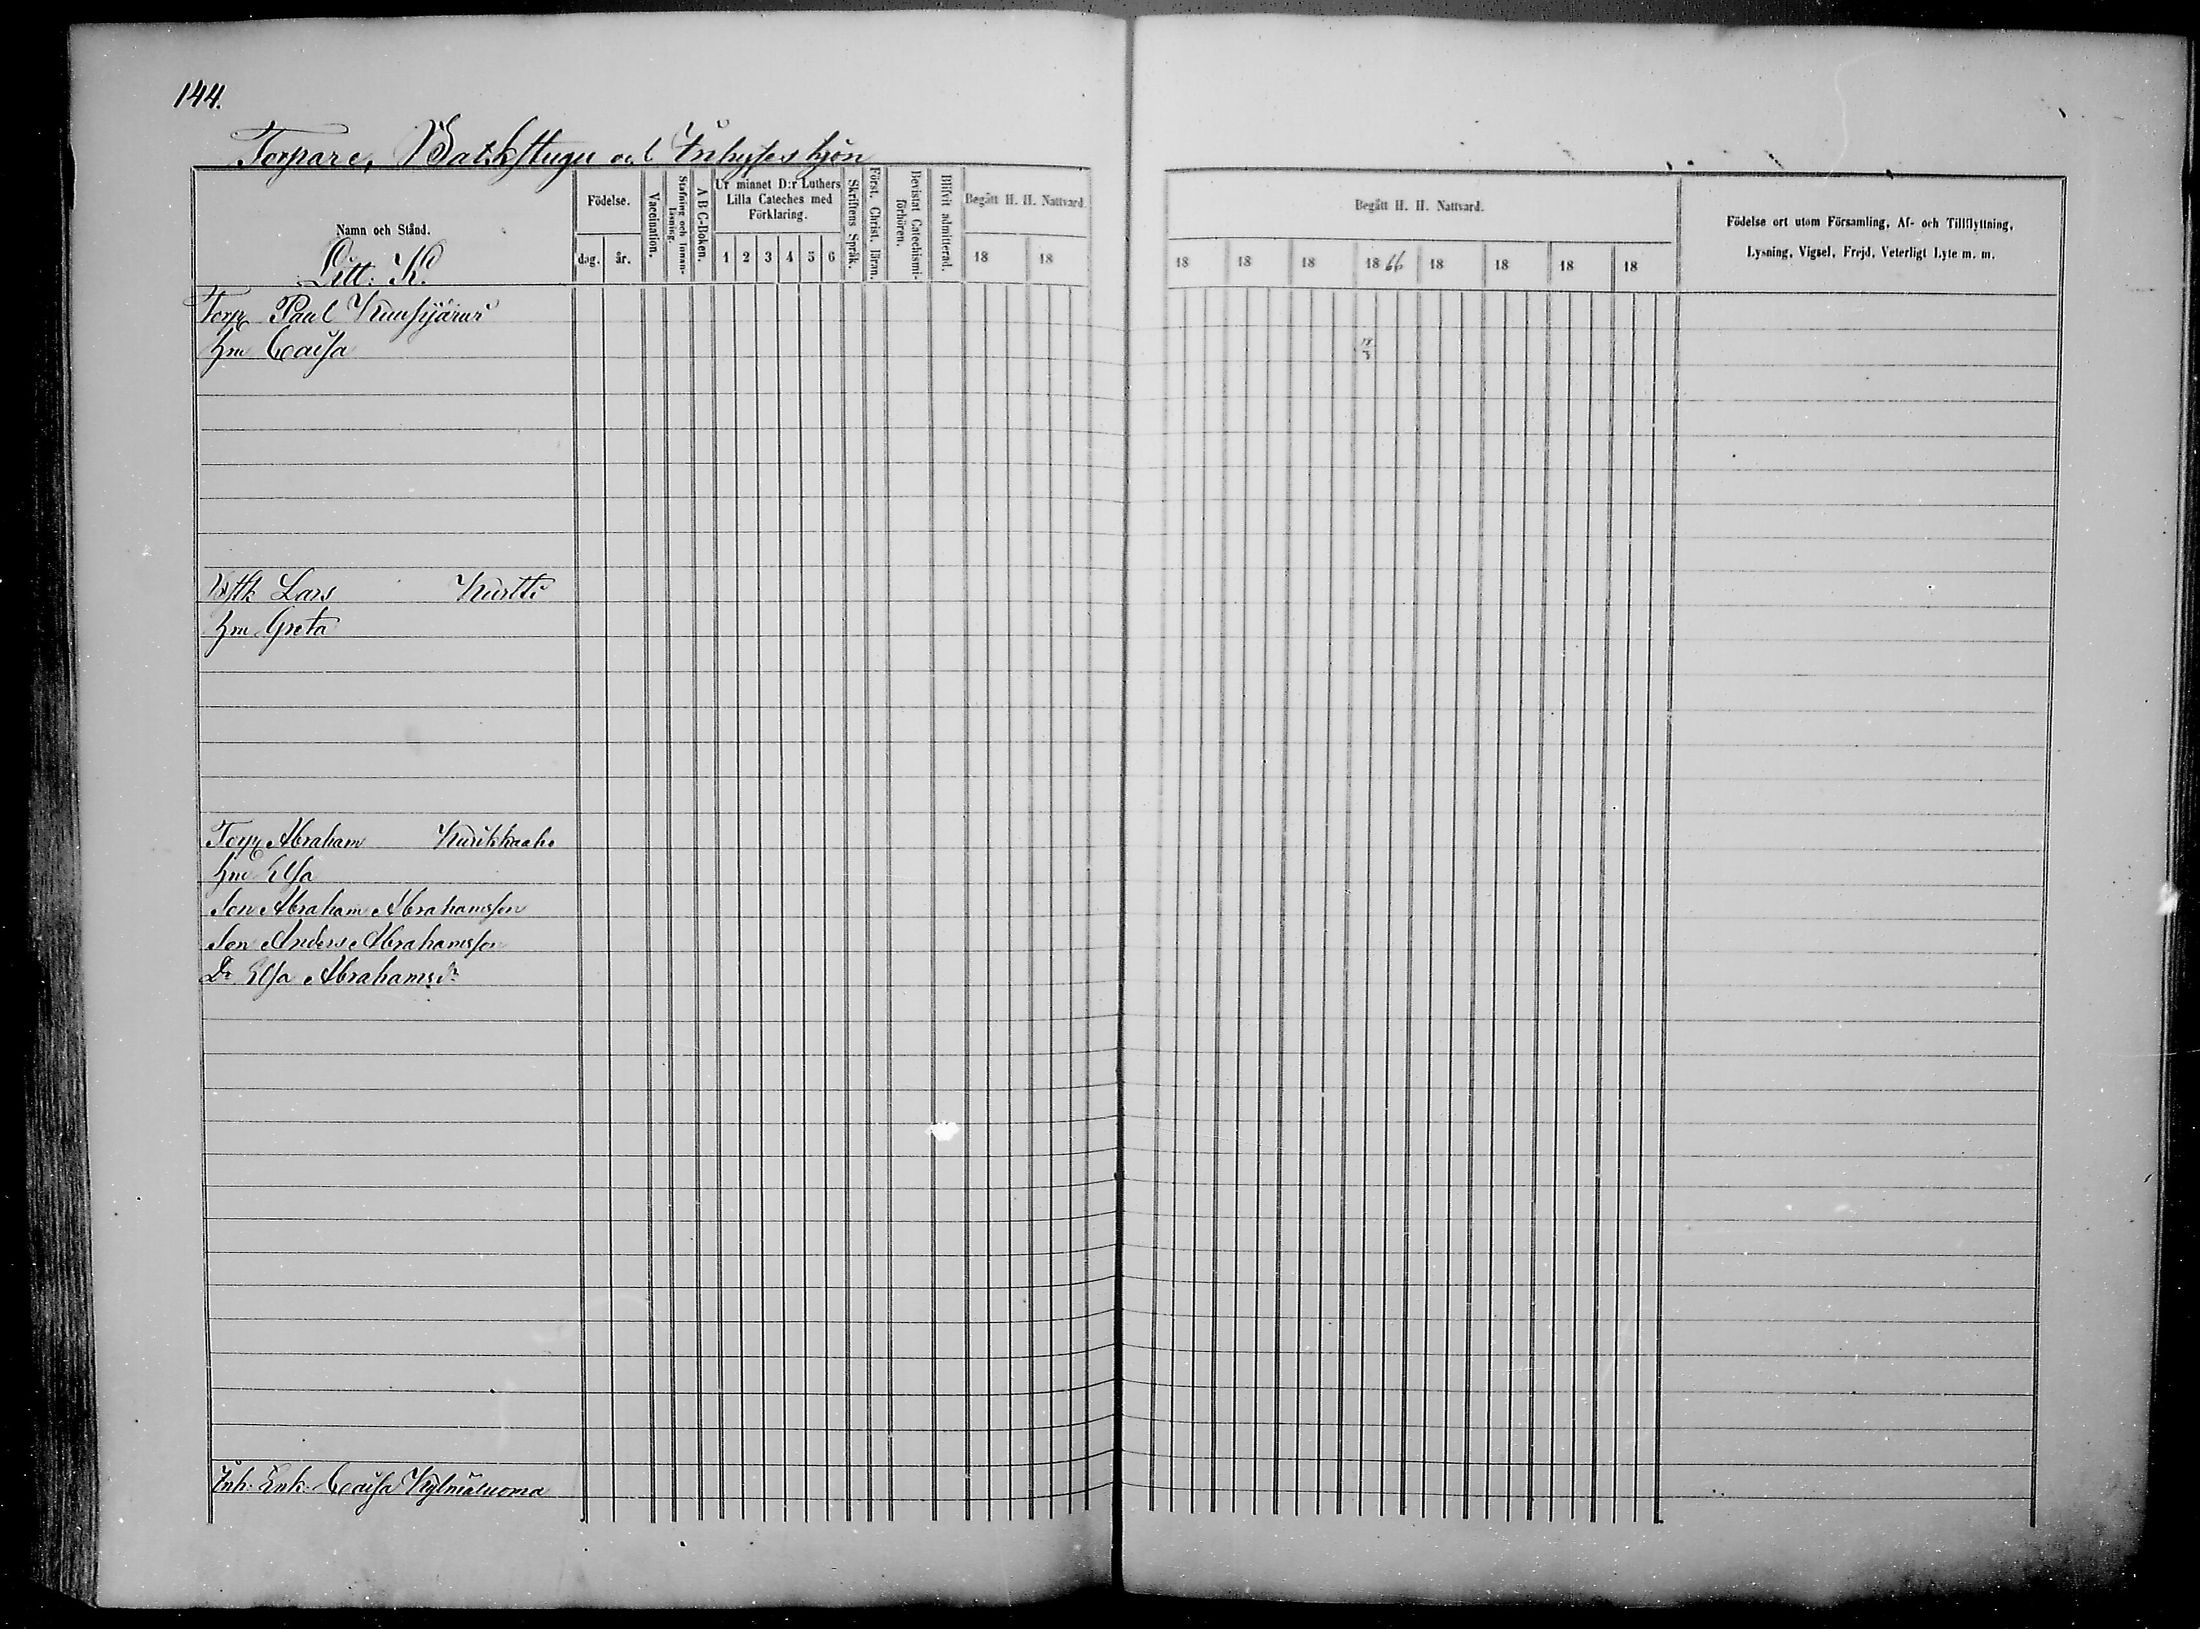 144.
Torpare, Backstugu och Inhyses hjon
Namn och Stånd.
Litt: K.
Födelse.
dag. år.
Vaccination.
Stafning och Innan-
läsning.
A B C-Boken.
Ur minnet D:r Luthers
Lilla Cateches med
Förklaring.
1 2 3 4 5 6
Skriftens Språk.
Först. Christ. läran.
Bevistat Catechismi-
förhören.
Blifvit admitterad.
Begått H. H. Nattvard.
18 18
Begått H. H. Nattvard.
18 18 18 1866 18 18 18 18
Födelse ort utom Församling, Af- och Tillflyttning,
Lysning, Vigsel, Frejd, Veterligt Lyte m. m.
Torp Paul Kuusijärvi
hu Caisa
18/3
Bstk Lars Kurtti
hu Greta
Torp Abraham Kurikkaaho
hu Elsa
Son Abraham Abrahamsson
Son Anders Abrahamsson
Dr Elsa Abrahamsdr
Inh: Enk: Caisa Kylmäluoma